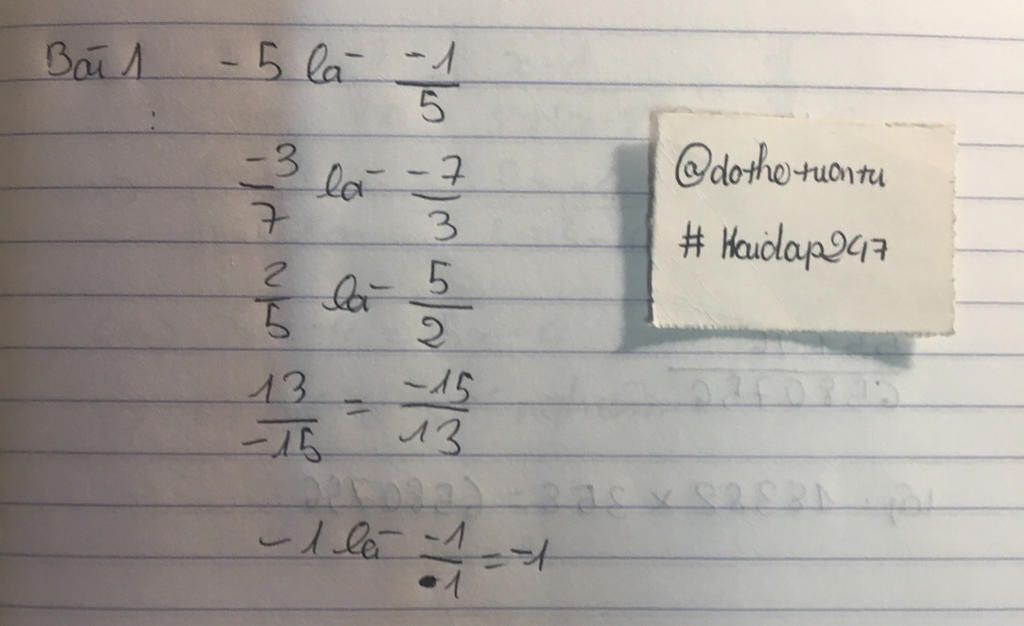 Bài 1 -5 là -1/5
:
-3/7 là -7/3
2/5 là 5/2
13/-15 = -15/13
-1 là -1/1 = -1
@dothetuantu
# Haidap247